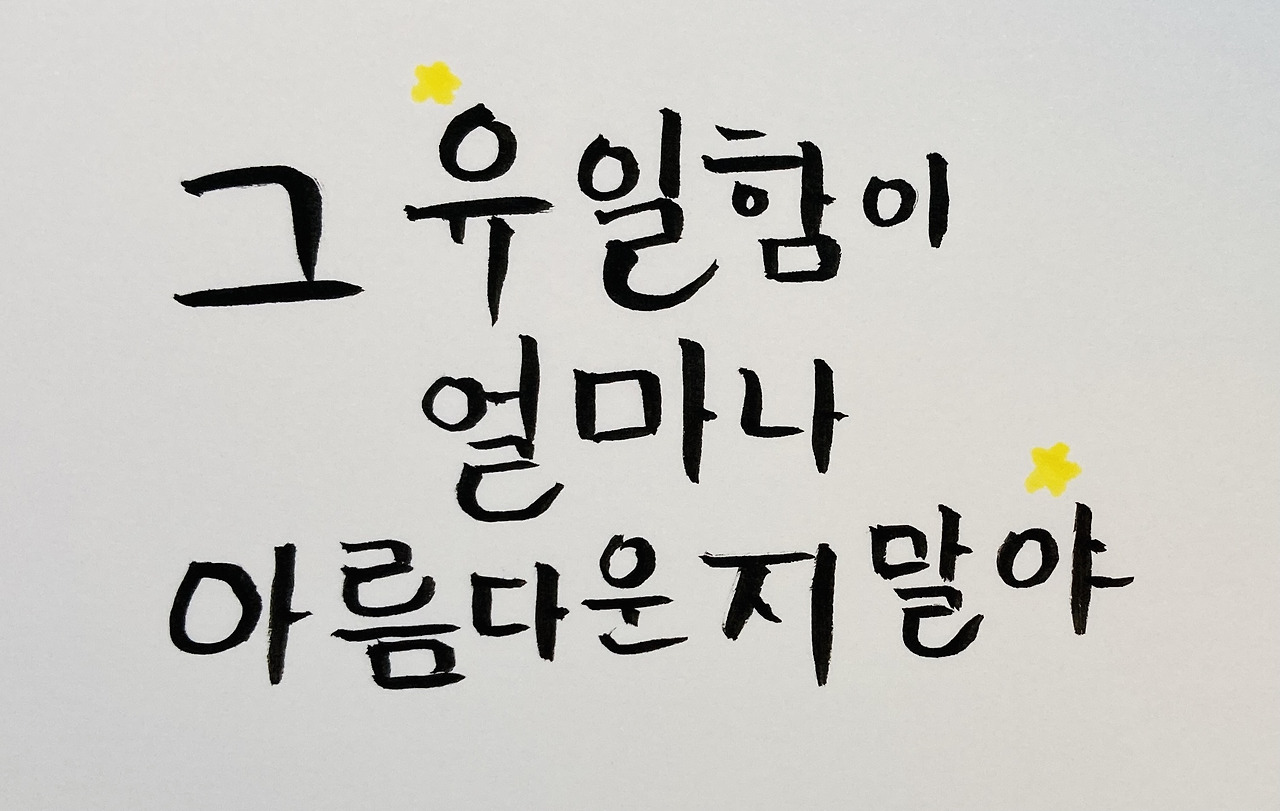 그 유일함이
얼마나
아름다운지 말야